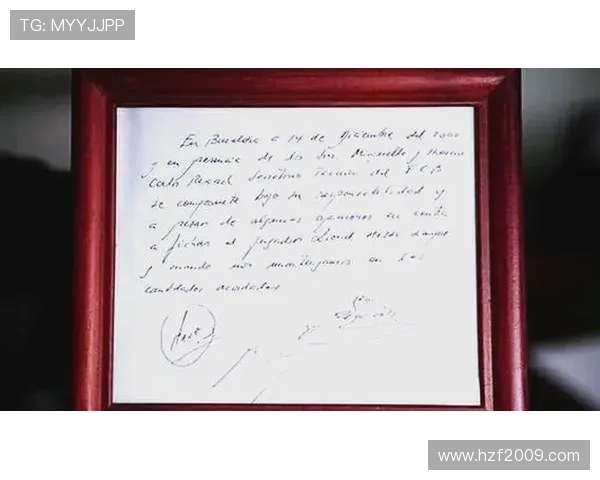 TG: MYYJJPP
En Barcelona a 14 de Diciembre del 2000
y en presencia de los Srs. Minguella y
Carlos Rexach Secretario Técnico del F.C.B
se compromete bajo su responsabilidad y
a pesar de algunas opiniones en contra
a fichar al jugador Lionel Messi
y cuando nos mantengamos en las
cantidades acordadas
www.hzf2009.com